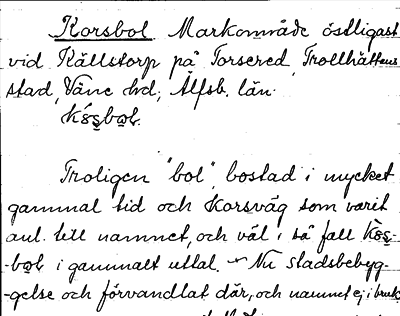 Korsbol Markområde östligast
vid Källstorp på Torsered, Trollhättans
stad, Väne hd, Älfsb. län.
Troligen "bol", bostad i mycket
gammal tid och Korsväg som varit
anl. till namnet, och väl i så fall
-bol i gammalt uttal. Nu stadsbebyg-
-gelse och förvandlat där, och namnet ej i bruk